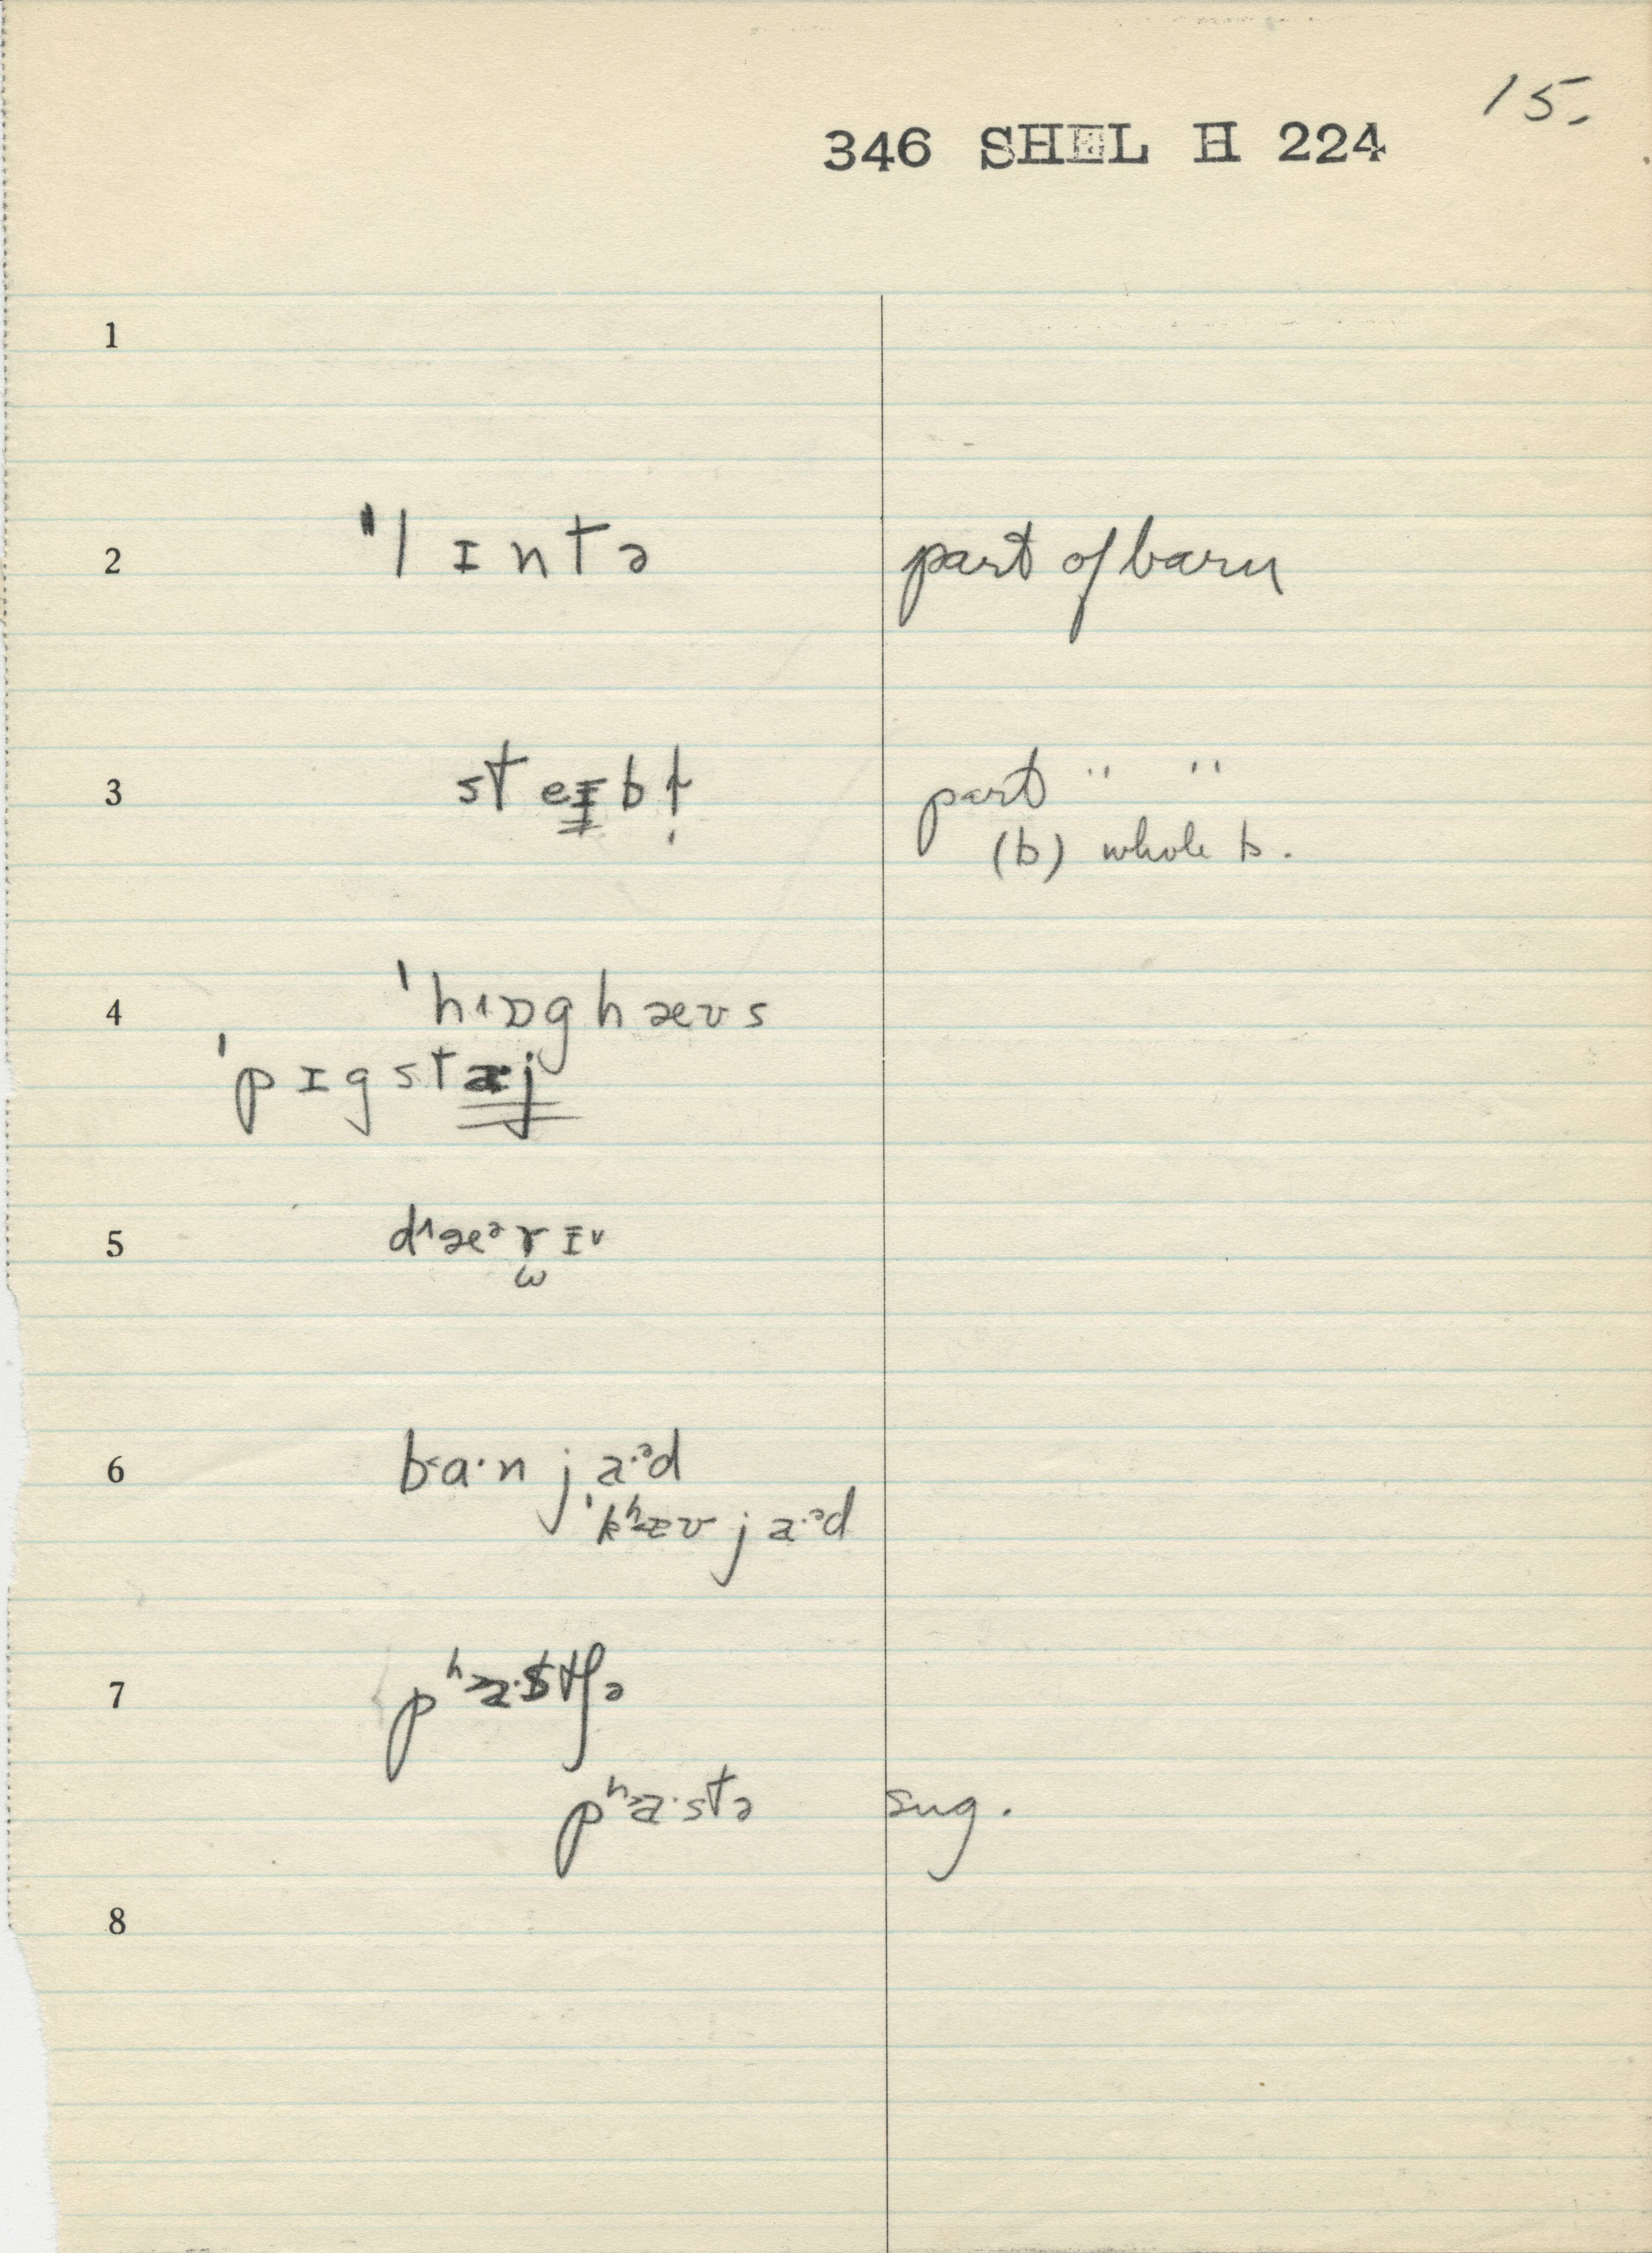 15.
346 SHEL H 224
1
2 "lɪntə part of barn
3 steɪbł̩ part " "
(b) whole b.
4 ˈh˄ɒghæʊs
ˈpɪgstaj
5 d˄æᵊrɪ˅
ω
6 b˂a·n ja·ᵊd
ˈkʰæʊ ja·ᵊd
7 pʰ˃a·stʃə
pʰ˃a·stə sug.
8